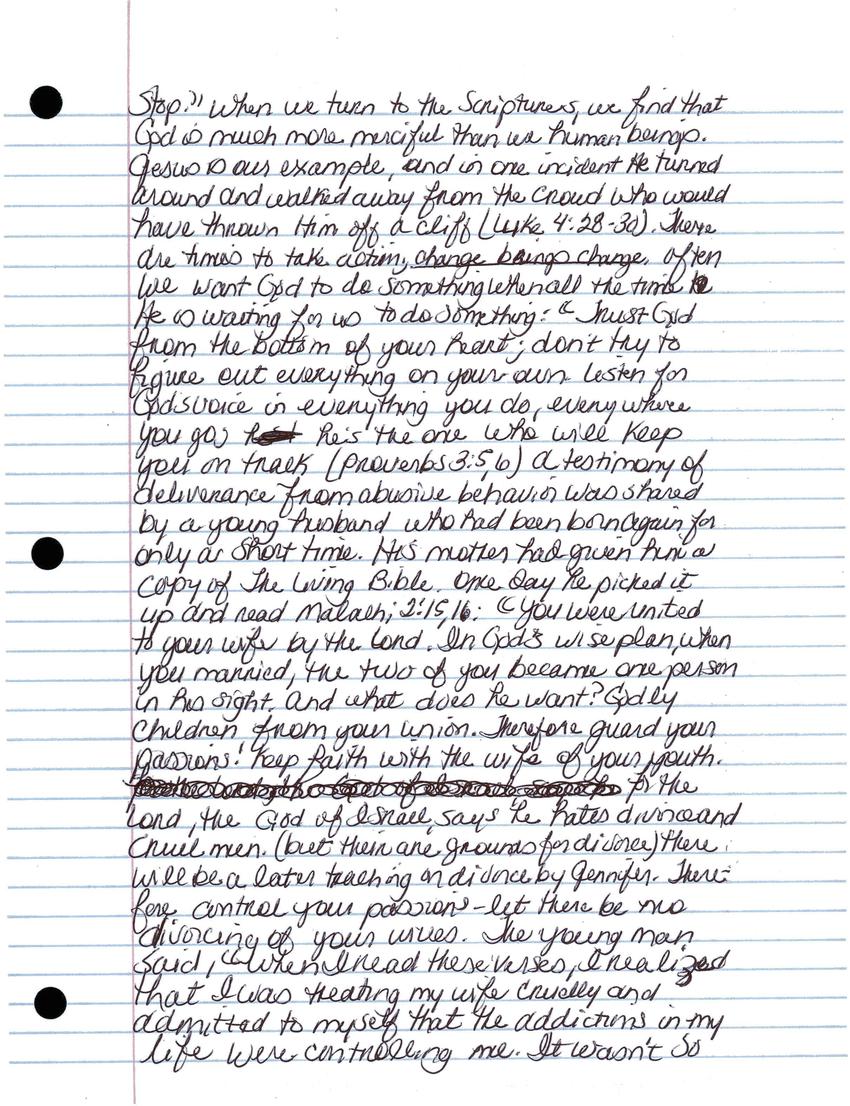 Stop?" When we turn to the Scriptures, we find that
God is much more merciful than we human beings.
Jesus is our example, and in one incident He turned
around and walked away from the crowd who would
have thrown Him off a cliff (Luke 4:28-30). There
are times to take action; change brings change. Often
We want God to do something when all the time
He is waiting for us to do something: "Trust God
from the bottom of your heart; don't try to
figure out everything on your own. Listen for
God's voice in everything you do, everywhere
you go; he's the one who will keep
you on track (Proverbs 3:5,6) A testimony of
deliverance from abusive behavior was shared
by a young husband who had been born again for
only a short time. His mother had given him a
copy of The Living Bible. One day he picked it
up and read Malachi 2:15,16: "You were united
to your wife by the Lord. In God's wise plan, when
you married, the two of you became one person
in his sight. And what does he want? Godly
children from your union. Therefore guard your
passions! Keep faith with the wife of your youth.
for the
Lord, the God of Israel, says he hates divorce and
cruel men. (but their are grounds for divorce) there
will be a later teaching on divorce by Jennifer. There-
fore control your passions-let there be no
divorcing of your wives. The young man
said, "When I read these verses, I realized
that I was treating my wife cruelly and
admitted to myself that the addictions in my
life were controlling me. It wasn't so